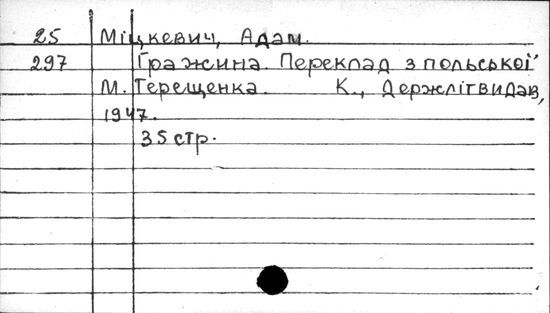 25 Міцкевич, Адам.
297 Гражина. Переклад з польської
М. Терещенка. К., Держлітвидав,
1947.
35 стр.